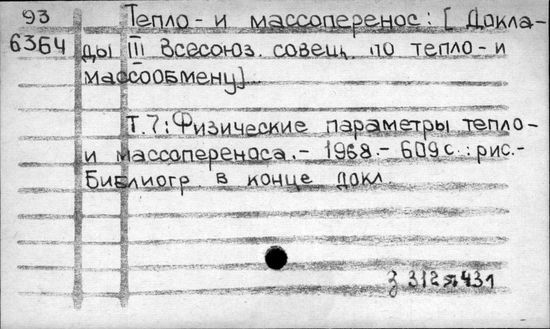 93 Тепло- и массоперенос: [Докла-
6364 ды III Всесоюз. совещ. по тепло- и
массообмену]...
Т.7: Физические параметры тепло-
и массопереноса. - 1968. - 609 с.: рис. -
Библиогр. в конце докл.
з 312я431